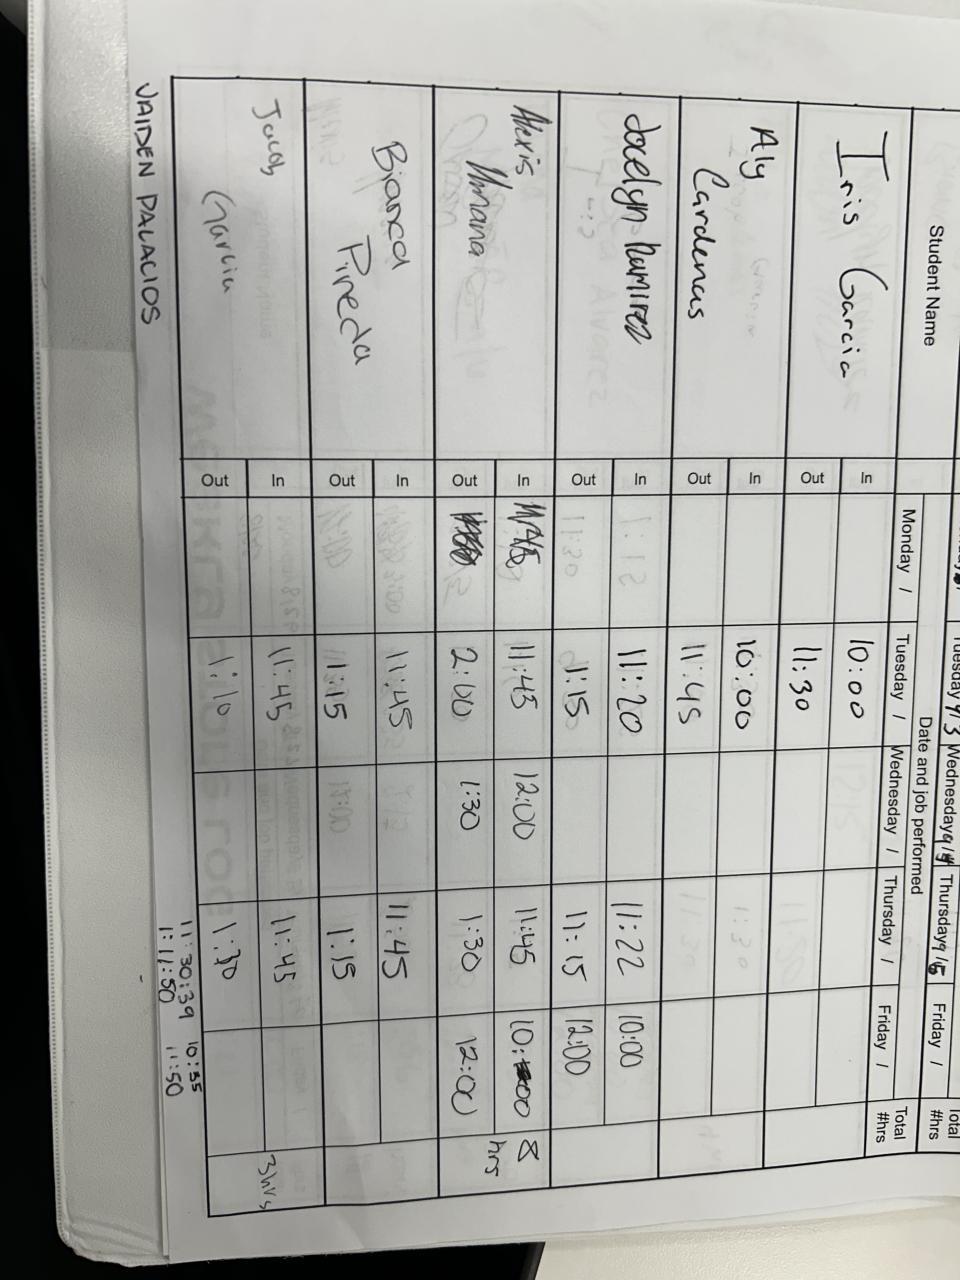 Tuesday 9/3 Wednesday 9/4 Thursday 9/5 Friday / Total #hrs
Student Name
Date and job performed
Monday / Tuesday / Wednesday / Thursday / Friday / Total #hrs
Iris Garcia
In 10:00
Out 11:30
Aly Cardenas
In 10:00
Out 11:45
Jocelyn Ramirez
In 11:20 11:22 10:00
Out 1:15 11:15 12:00
Alexis Umana
In 11:45 12:00 11:45 10:00 8 hrs
Out 2:00 1:30 1:30 12:00
Bianca Pineda
In 11:45 11:45
Out 1:15 1:15
Jacob Garcia
In 11:45 11:45 3hrs
Out 1:10 1:30
VAIDEN PALACIOS 11:30:39 10:55
1:11:50 11:50